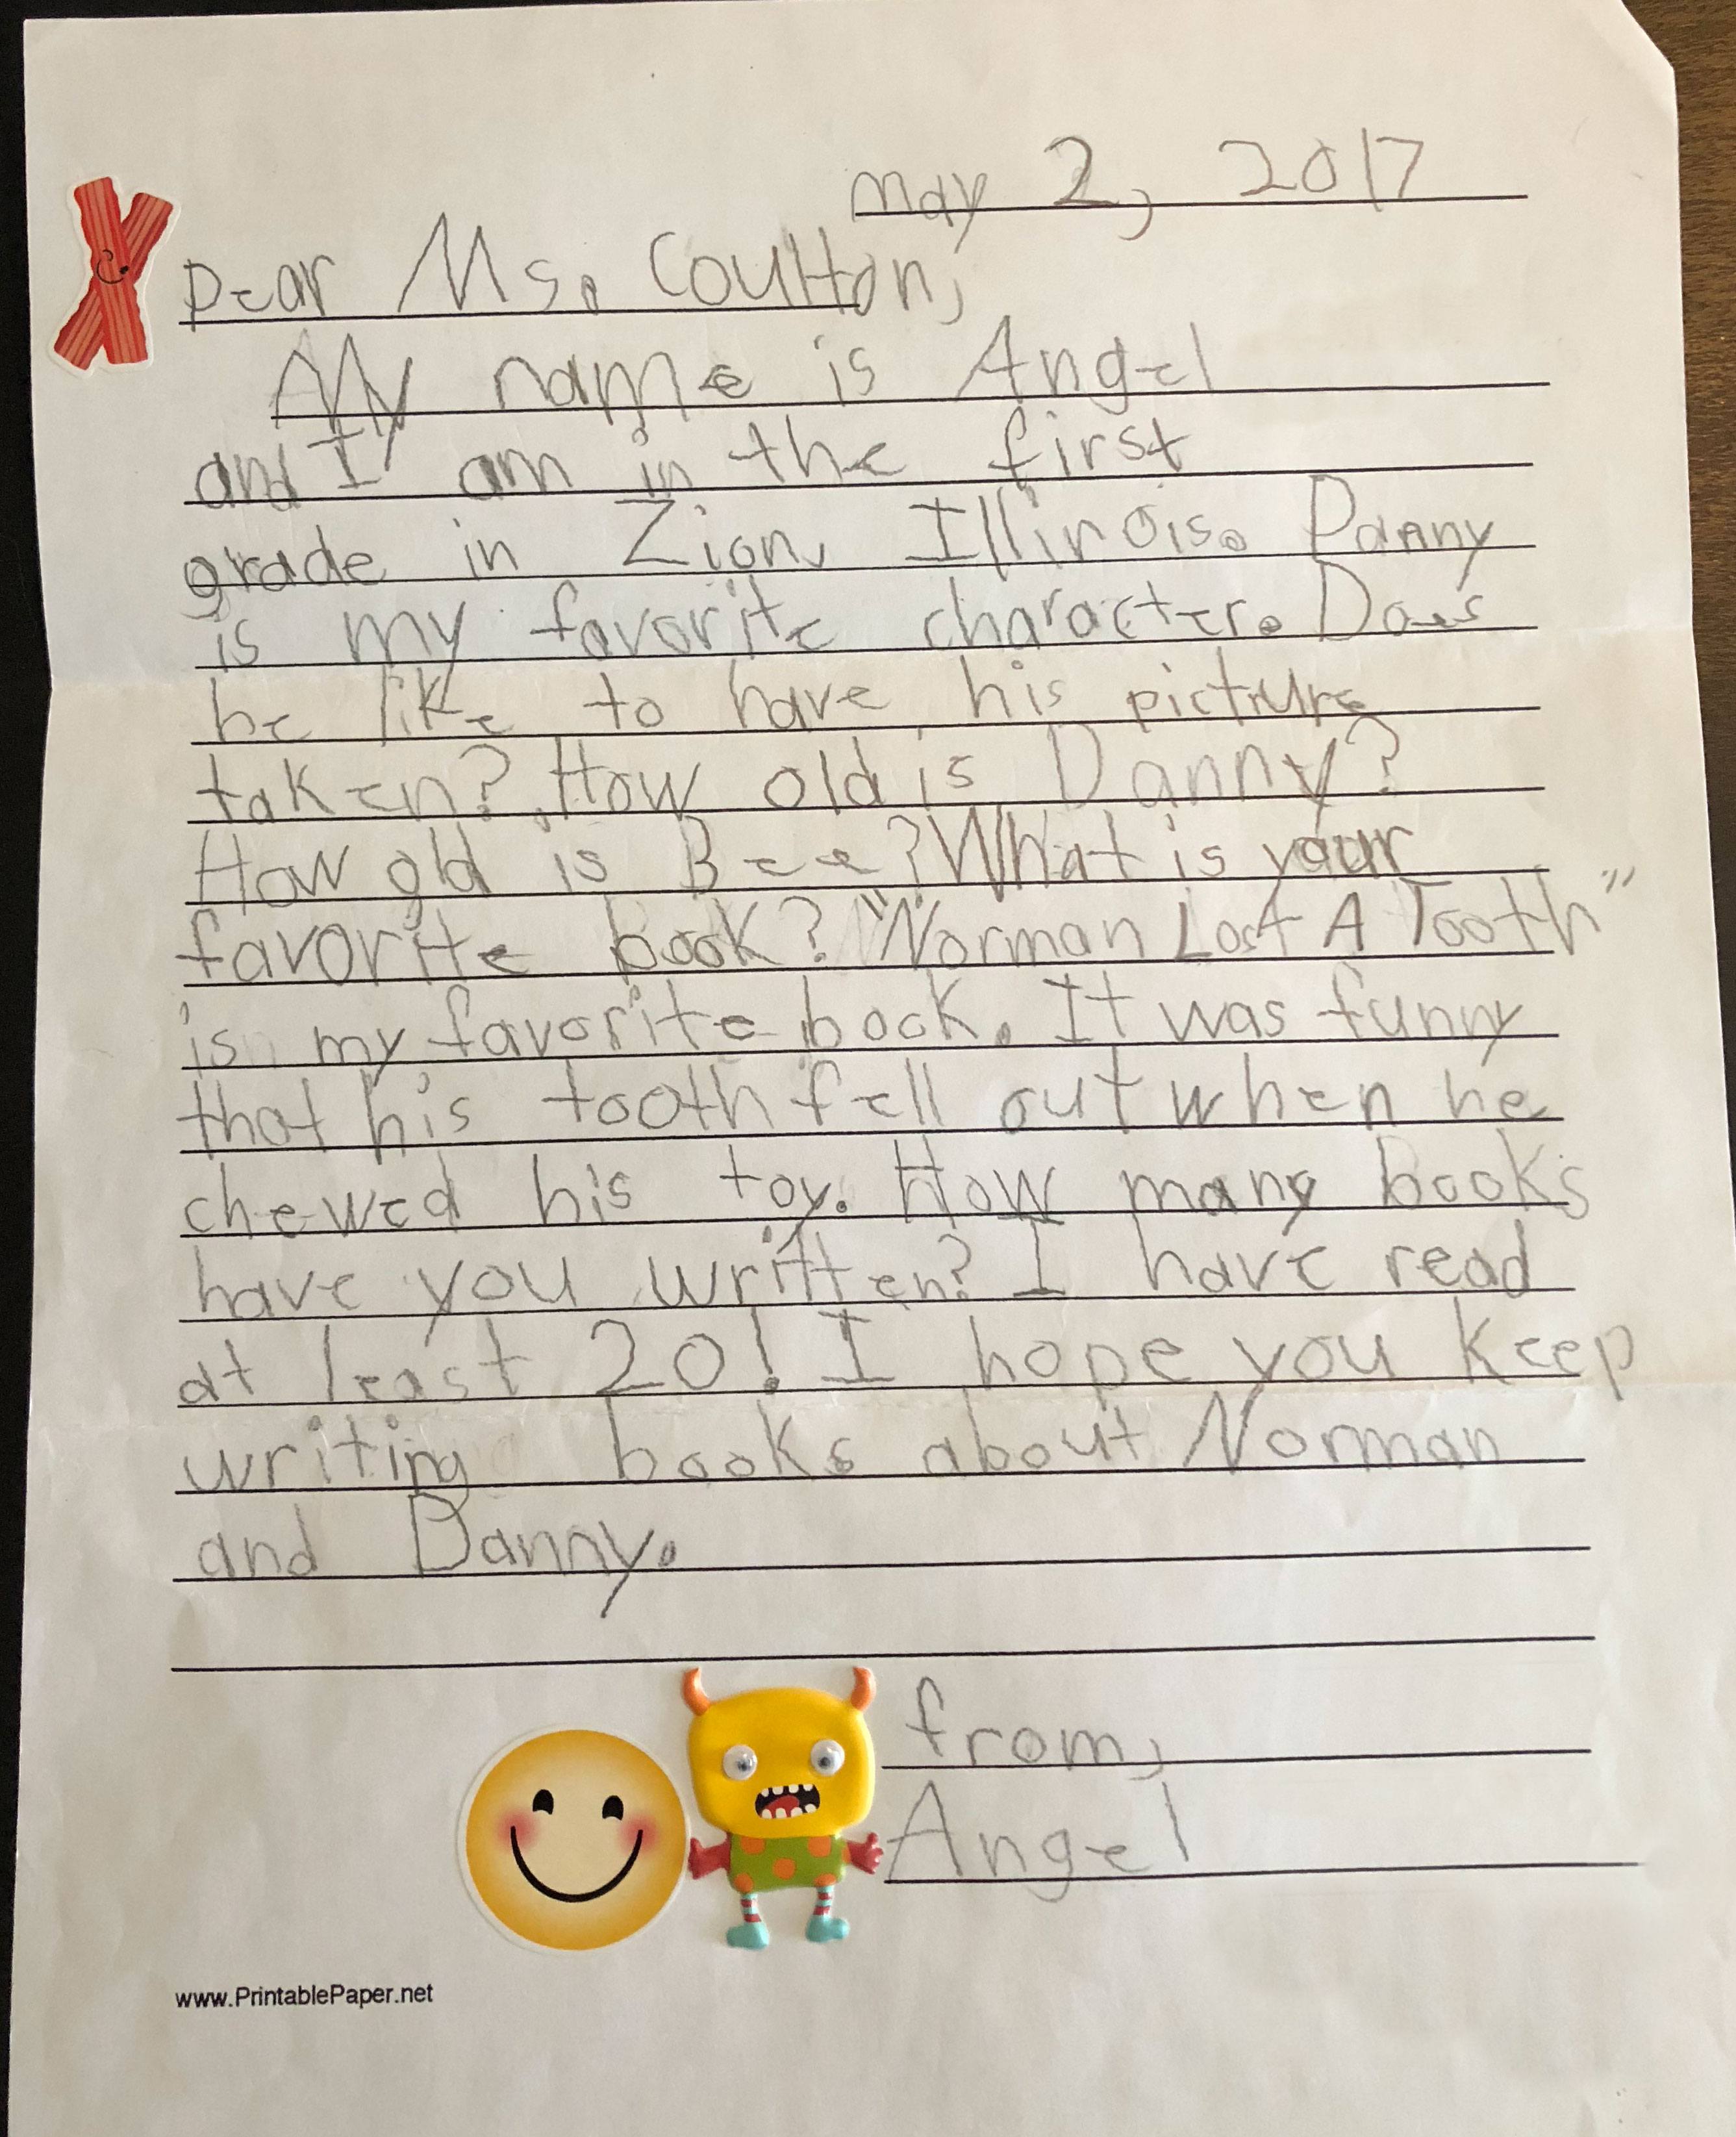 may 2, 2017
Dear Ms. Coulton,
My name is Angel
and I am in the first
grade in Zion, Illinois. Danny
is my favorite character. Does
he like to have his picture
taken? How old is Danny?
How old is Bee? What is your
favorite book? "Norman Lost A Tooth"
is my favorite book. It was funny
that his tooth fell out when he
chewed his toy. How many books
have you written? I have read
at least 20! I hope you keep
writing books about Norman
and Danny.
from,
Angel
www.PrintablePaper.net